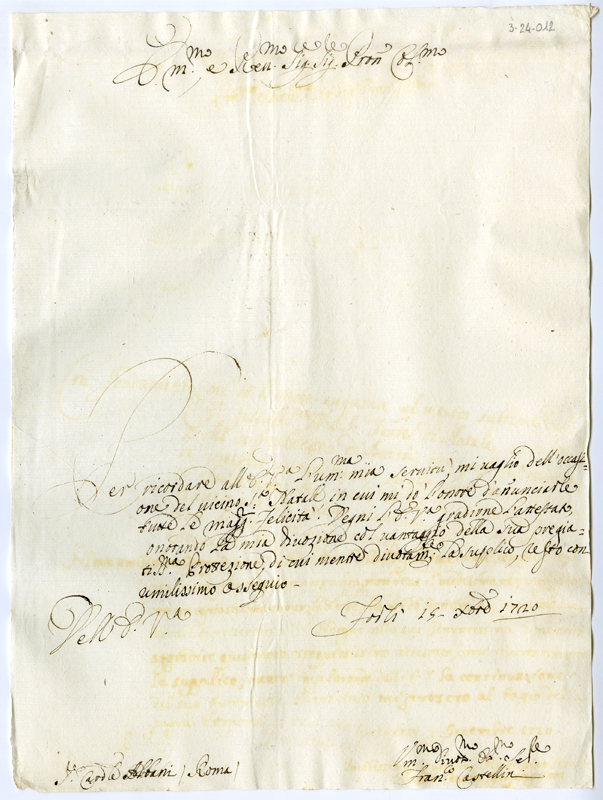 3-24-012
E.mo e Rev.mo Sig.re Sig.re Pron Col.mo
Per ricordare all'E. V.ra l'um.ma mia servitù, mi vaglio dell'occasi=
one del vicino S.to Natale in cui mi dò l'onore d'anunciarle
tutte le magg.i felicità. Degni l'E. V.ra gradirne l'attestato,
onorando la mia divozione col vantaggio della sua pregia=
tiss.ma Protezione, di cui mentre divotam.te la supplico, resto con
umilissimo ossequio -
Dell'E. V.ra
Forlì 15 Xbre 1720
S.r Card.le Albani (Roma)
Um.mo Divot.mo Ob.mo Se.re
Fran.co Castellini